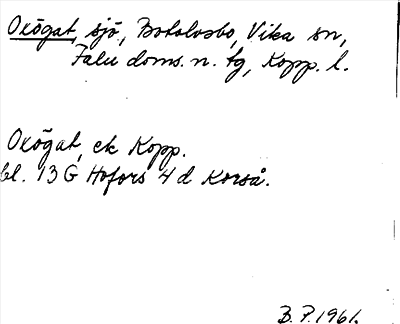 Oxögat, sjö, Botolvsbo, Vika sn,
Falu doms. n. tg, Kopp. l.
Oxögat, ek Kopp.
bl. 13G Hofors 4d Korså.
B. P. 1961.